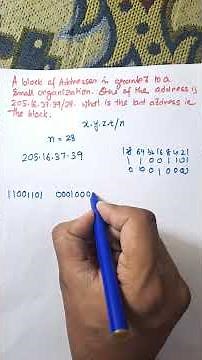 A block of Addresses is granted to a
small organization. One of the address is
205.16.37.39/28. What is the last address in
the block.
x.y.z.t/n
n = 28
205.16.37.39
128 64 32 16 8 4 2 1
1 1 0 0 1 1 0 1
0 0 0 1 0 0 0 0
11001101 0001000